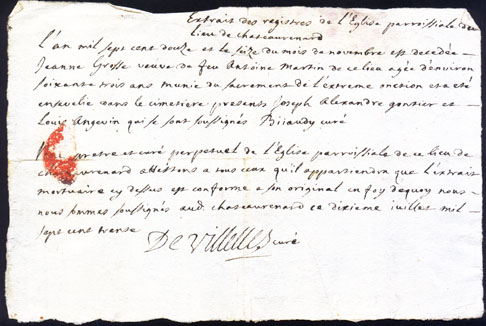 Extrait des registres de l'Eglise parroissiale du
lieu de chateaurenard
L'an mil sept cent douze et le seize du mois de novembre est decedée
Jeanne Grosse veuve de feu Antoine Martin de ce lieu agée d'environ
soixante trois ans munie du sacrement de l'extreme onction et a été
ensevelie dans le cimetiere presents Joseph Alexandre gontier et
Louis Angevin qui se sont soussignés curé
pretre et curé perpetuel de l'Eglise parroissiale de ce lieu de
chateaurenard attestons a tous ceux qu'il appartiendra que l'extrait
mortuaire cy dessus est conforme a son original en foy de quoy nous
nous sommes soussignés aud. chateaurenard ce dixieme juillet mil
sept cent trense
De Villelles curé